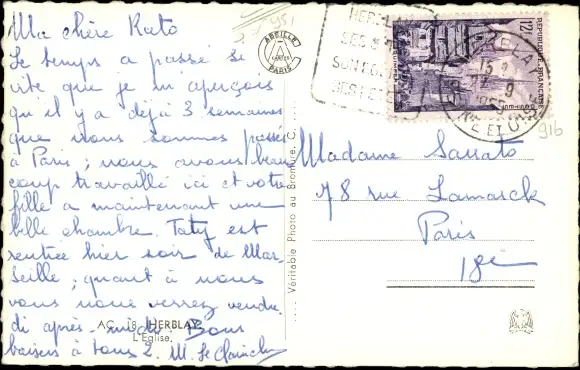 Ma chère Kato
Le temps a passé si
vite que je m'aperçois
qu'il y a déjà 3 semaines
que nous sommes passés
à Paris ; nous avons beau
coup travaillé ici et votre
fille a maintenant une
belle chambre. Taty est
rentrée hier soir de Mar
seille ; quant à nous
vous nous verrez vendre
di après-midi. Bons
baisers à tous 2.
AC. 18. HERBLAY
L'Eglise.
ABEILLE
CARTES
PARIS
Véritable Photo au Bromure
HERBLAY
REPUBLIQUE FRANÇAISE
12F
Madame Sarrato
78 rue Lamarck
Paris
18e
916